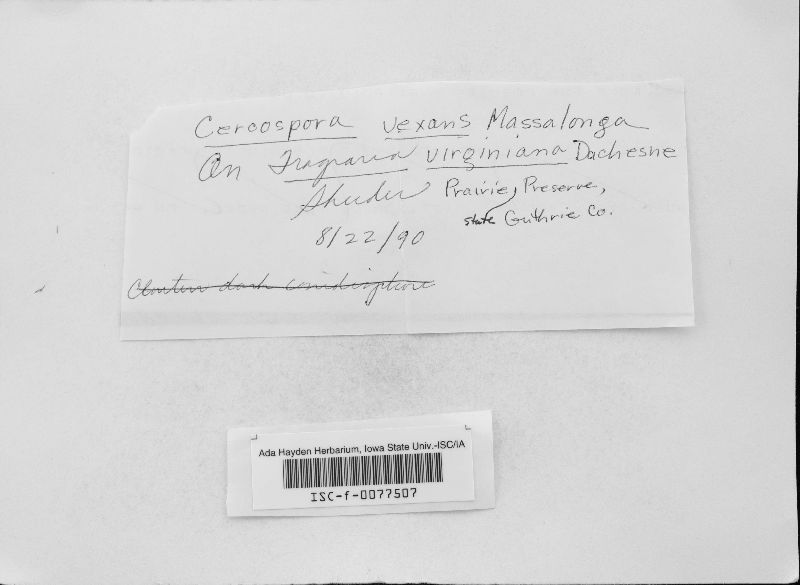 Cercospora vexans Massalonga
On Fragaria virginiana Duchesne
Sheeder Prairie, Preserve,
state Guthrie Co.
8/22/90
dark conidiophore
Ada Hayden Herbarium, Iowa State Univ.-ISC/IA
ISC-f-0077507